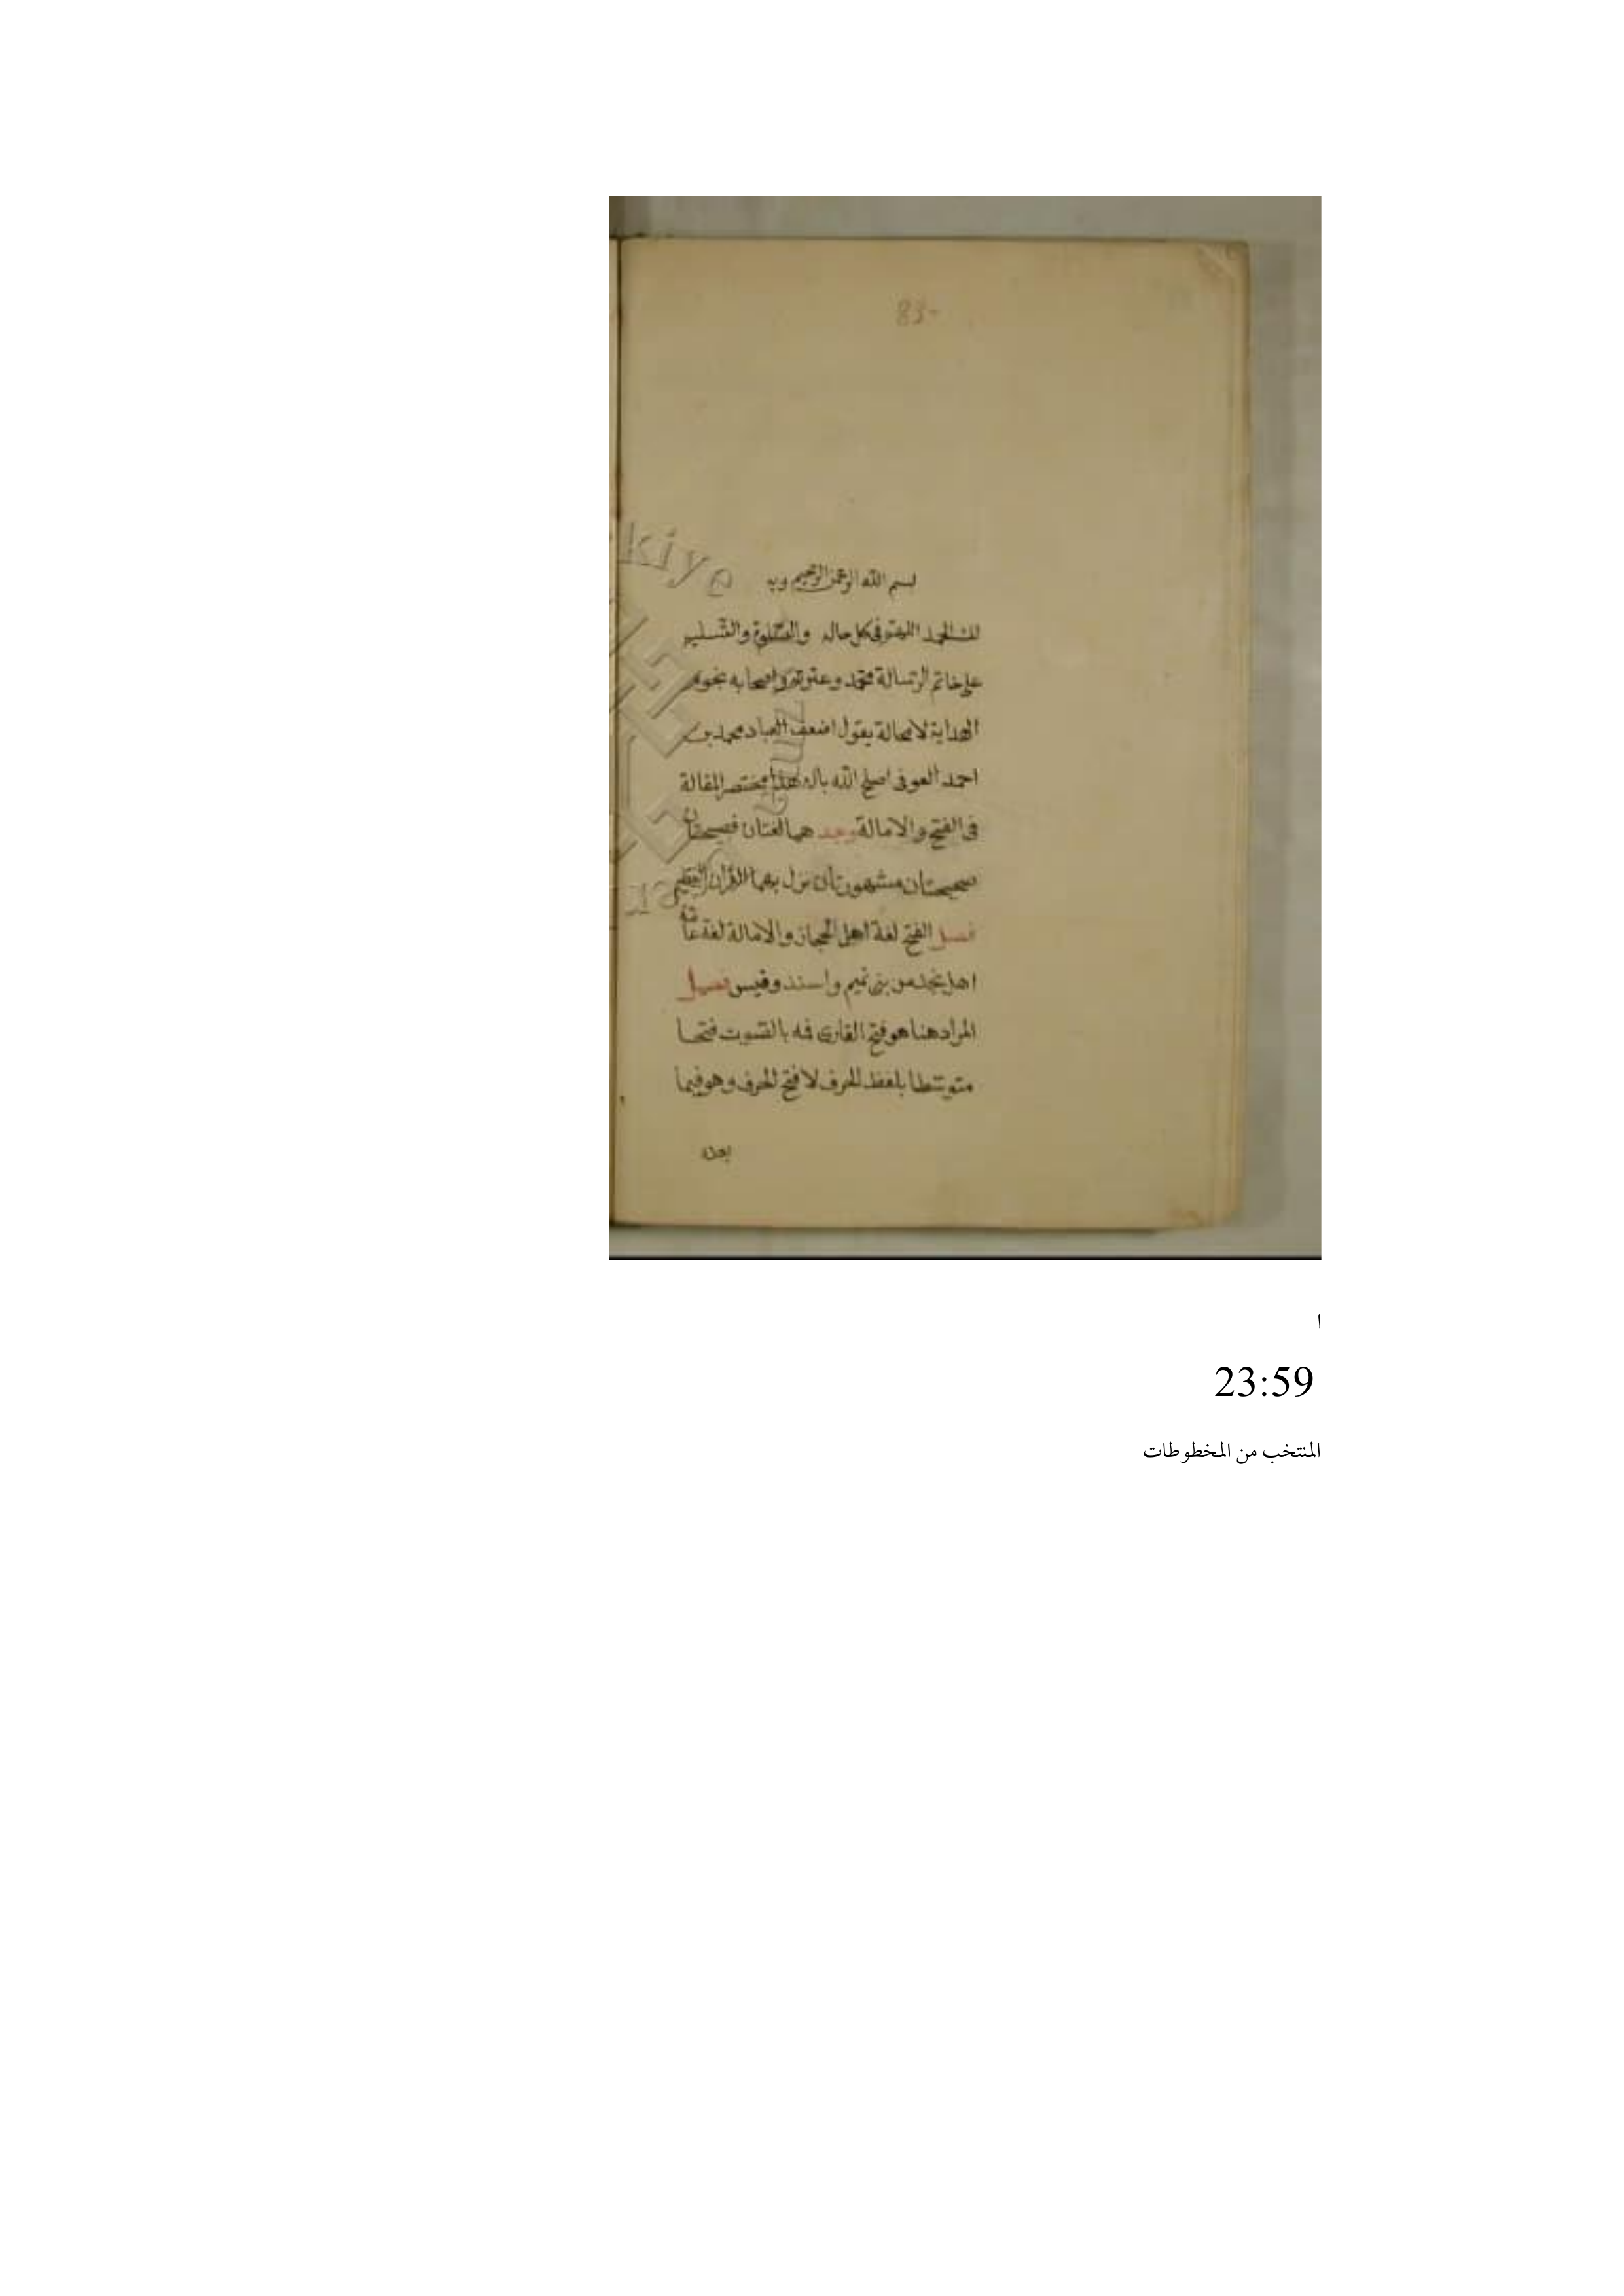 83
بسم الله الرحمن الرحيم وبه
لك الحمد اللهم في كل حاله والصلوة والتسليم
على خاتم الرسالة محمد وعترته واصحابه نجوم
الهداية لامحالة يقول اضعف العباد محمد بن
احمد العوفى اصلح الله باله هذا مختصر المقالة
فى الفتح والامالة وبعد هما لغتان فصيحتان
صحيحتان مشهورتان نزل بهما القرآن العظيم
فصل الفتح لغة اهل الحجاز والامالة لغة عامة
اهل نجد من بنى تميم واسد وقيس فصل
المراد هنا هو فتح القارى فه بالصوت فتحا
متوسطا بلفظ الحرف لا فتح الحرف وهو فيما
بعده
kiye
ا
23:59
المنتخب من المخطوطات